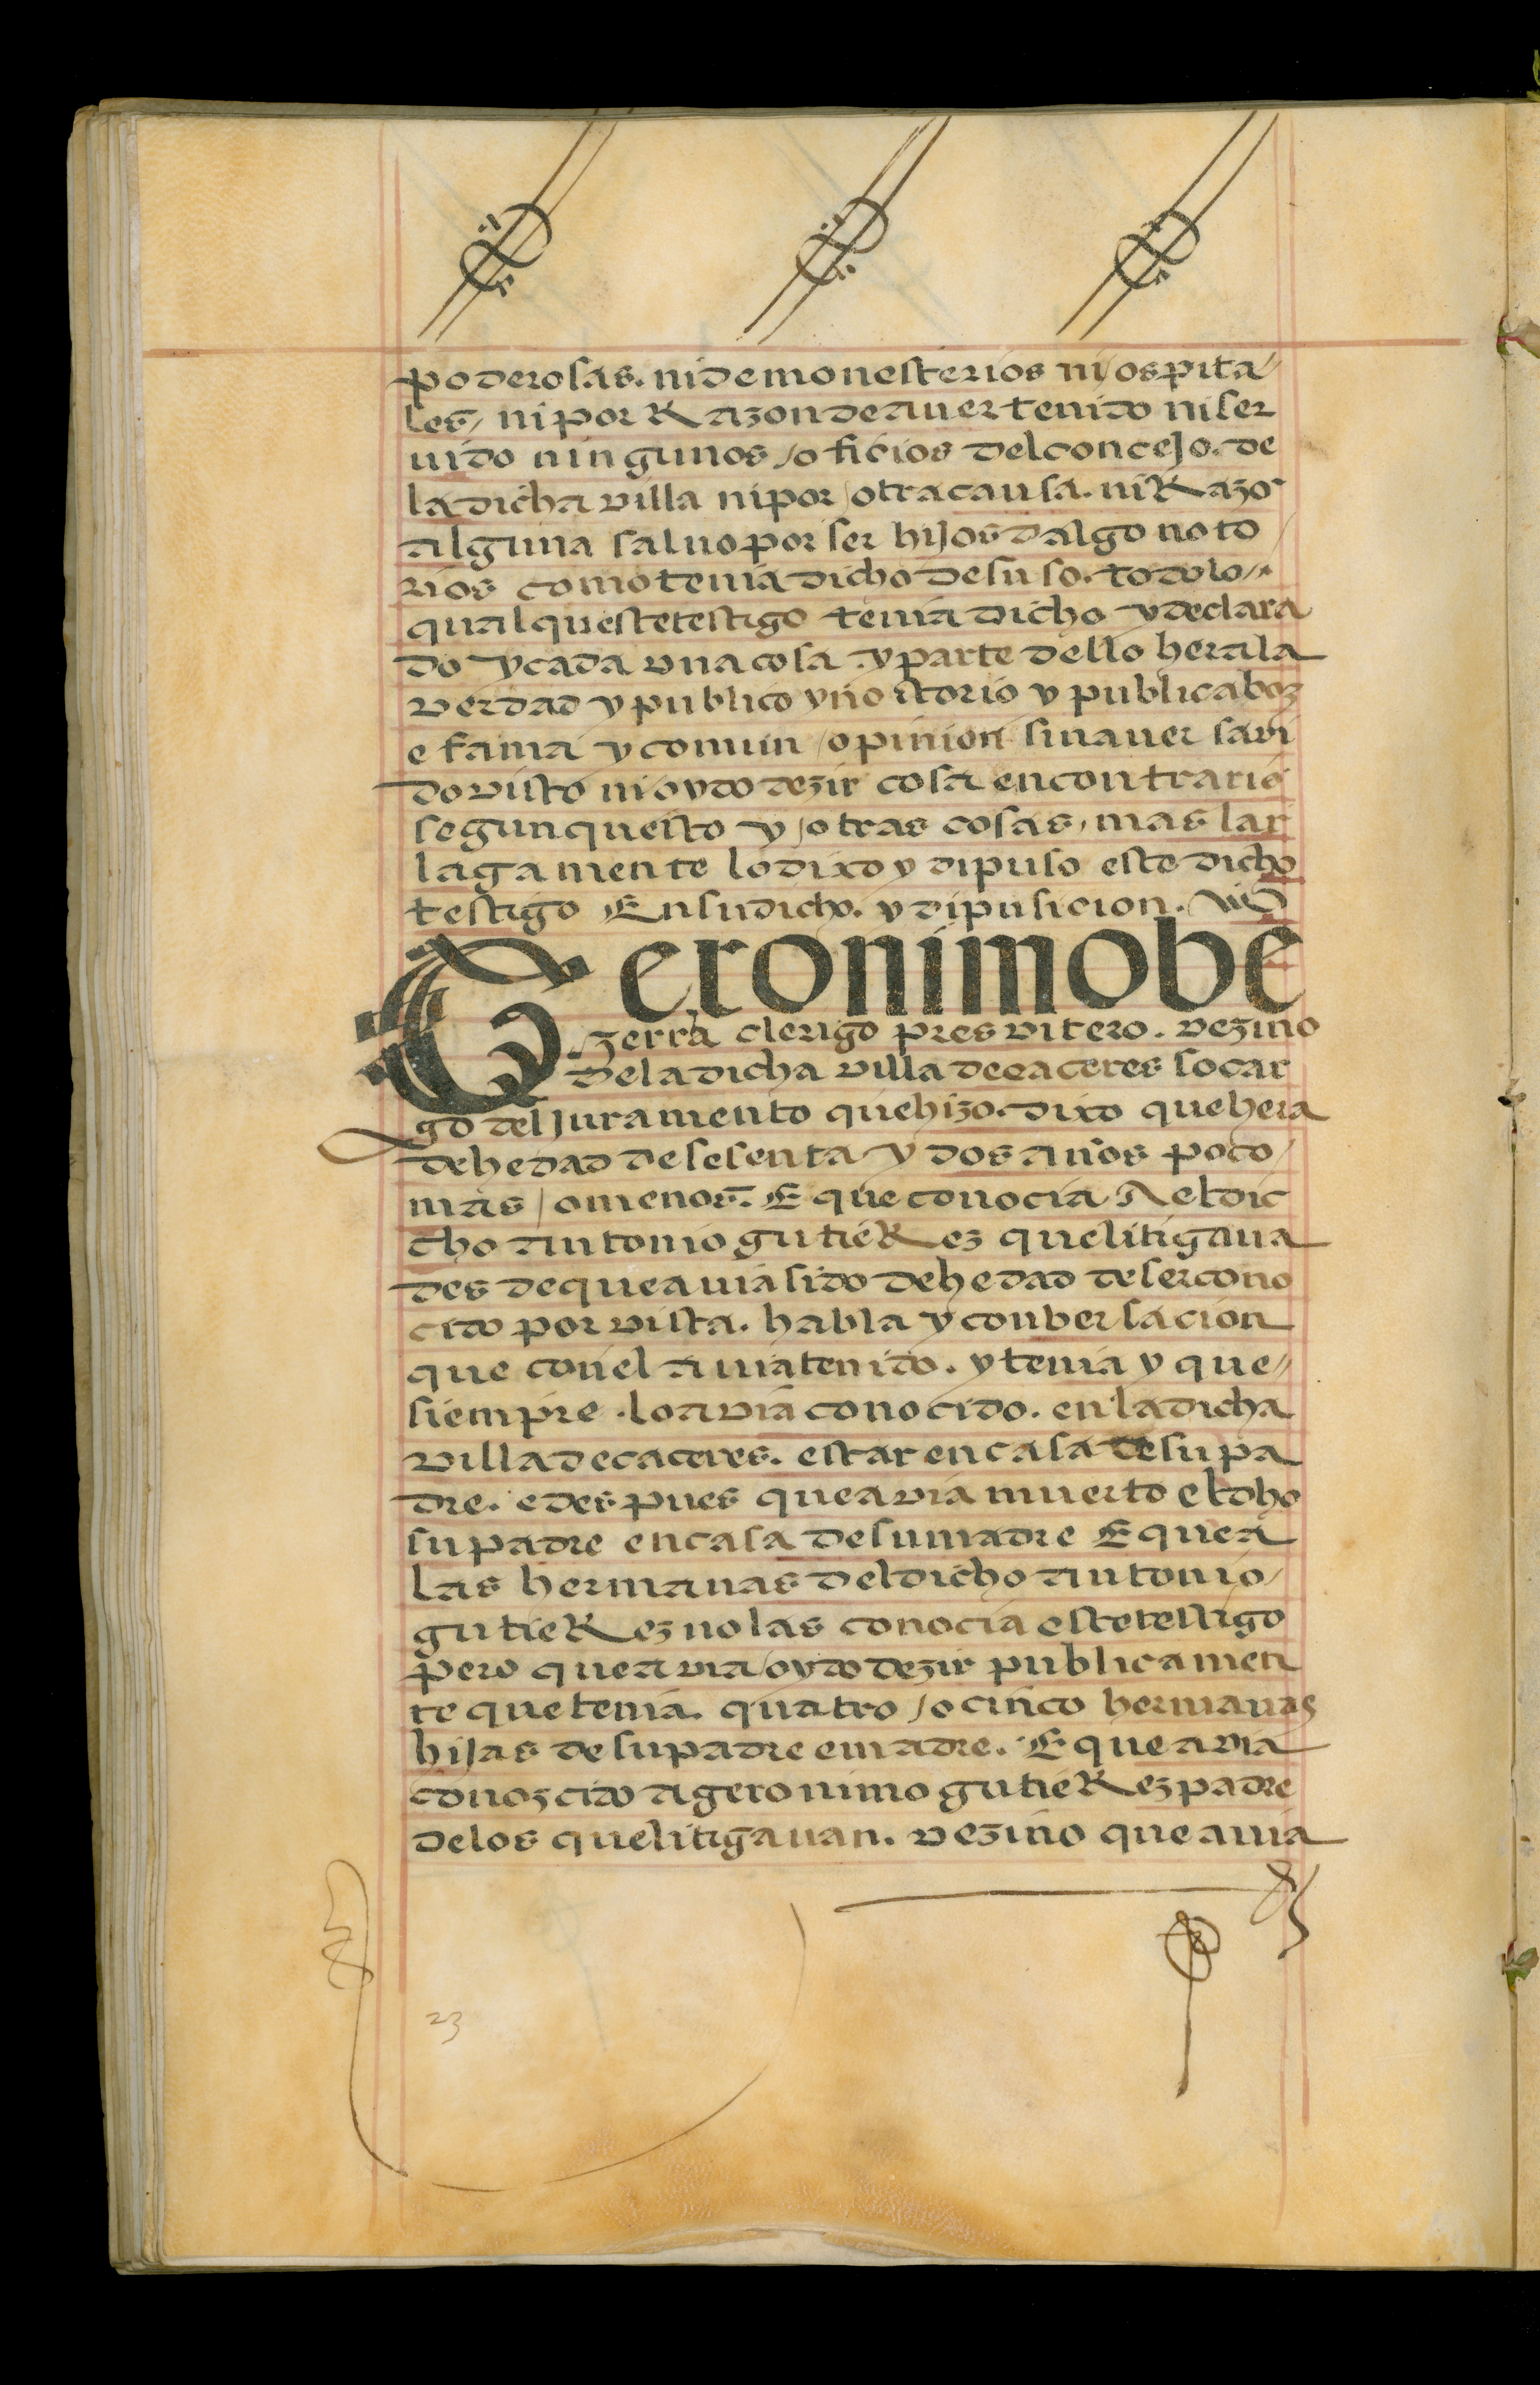 poderosas. ni de monesterios ni ospita
les, ni por Razon de auer tenido ni ser
uido ningunos oficios del concejo. de
la dicha villa ni por otra causa. ni Razo
alguna saluo por ser hijos dalgo noto
rios como tenia dicho de suso. todo lo
qual queste testigo tenia dicho y declara
do y cada vna cosa y parte dello hera la
verdad y publico y notorio y publica boz
e fama y comun opinion sin auer savi
do visto ni oydo dezir cosa en contrario
segun questo y otras cosas, mas lar
lagamente lo dixo y dipuso este dicho
testigo En su dicho. y dipusicion.
Geronimo be
zerra clerigo presvitero. vezino
de la dicha villa de caceres so car
go del Juramento que hizo. dixo que hera
de hedad de sesenta y dos años poco
mas o menos. E que conocia Ael dic
cho antonio gutieRez que litigaua
desde que auia sido de hedad de ser cono
cido por vista. habla y conbersacion
que con el auia tenido. y tenia y que
siempre lo avia conocido. en la dicha
villa de caceres. estar en casa de su pa
dre. e despues que avia muerto el dho
su padre en casa de su madre E que a
las hermanas del dicho antonio
gutieRez no las conocia este testigo
pero que avia oydo dezir publicamen
te que tenia. quatro o cinco hermanas
hijas de su padre e madre. E que avia
conozcido a geronimo gutieRez padre
de los que litigauan. vezino que auia
23